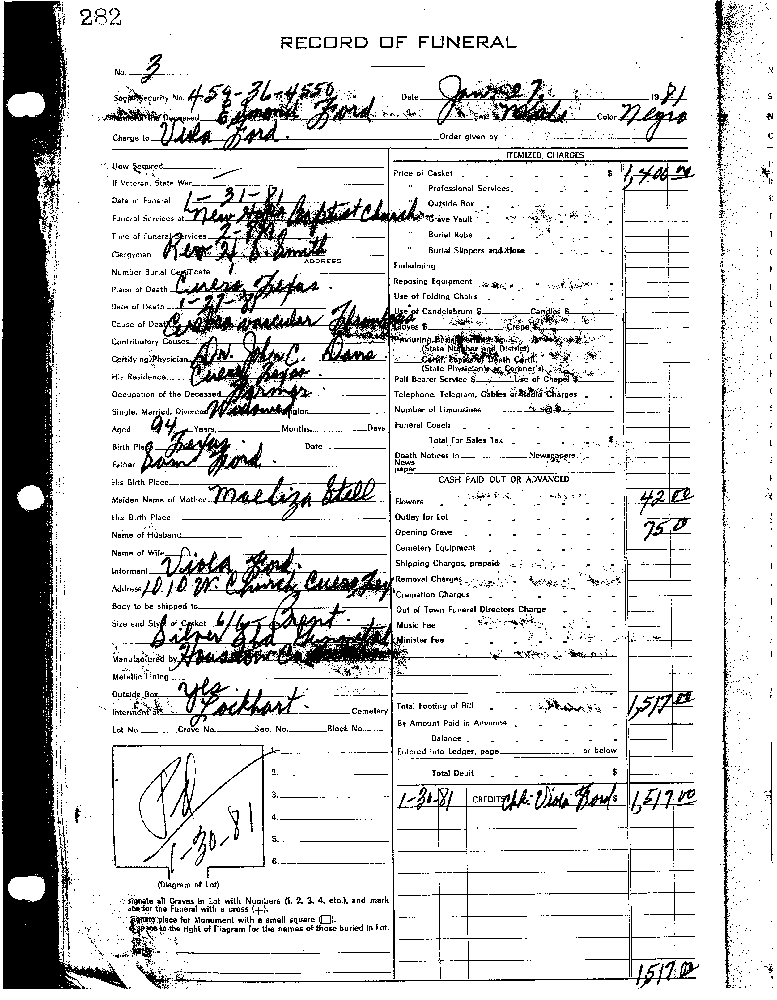 282
RECORD OF FUNERAL
No. 3
Social Security No. 459-36-4550 Date 19 81
Ford Color Negro
Charge to Viola Ford. Order given by
How Secured
If Veteran, State War
Date of Funeral 1-31-81
Funeral Services at New Hope Baptist Church
Time of Funeral Services
Clergyman Rev. H. S. Smith
ADDRESS
Number Burial Certificate
Place of Death Cuero, Texas.
Date of Death 1-27-81
Cause of Death vascular
Contributory Causes
Certifying Physician Dr. John C. Davis
His Residence Cuero Texas
Occupation of the Deceased Farmer
Single, Married, Divorced
Aged 94 Years, Months, Days
Birth Place Texas. Date
Father Sam Ford.
His Birth Place
Maiden Name of Mother Maeliza Stell
His Birth Place
Name of Husband
Name of Wife
Informant Viola Ford.
Address 1010 W. Church, Cuero Tex
Body to be shipped to
Size and Style of Casket 6/6
Silver
Manufactured by Houston
Metallic Lining
Outside Box yes
Interment at Lockhart. Cemetery
Lot No. Grave No. Sec. No. Block No.
Pd
1-30-81
1.
2.
3.
4.
5.
6.
(Diagram of Lot)
signate all Graves in Lot with Numbers (1, 2, 3, 4, etc.), and mark
for the Funeral with a cross (+).
place for Monument with a small square (□).
to the right of Diagram for the names of those buried in Lot.
ITEMIZED CHARGES
Price of Casket $ 1,400 00
" Professional Services
Outside Box
Grave Vault
Burial Robe
" Burial Slippers and Hose
Embalming
Reposing Equipment
Use of Folding Chairs
Use of Candelabrum $ Candles $
Gloves $ Crepe $
(State Number and District)
(State Physician's or Coroner's)
Pall Bearer Service $ Use of Chapel $
Telephone, Telegram, Cables or Radio Charges
Number of Limousines
Funeral Coach
Total For Sales Tax $
Death Notices in Newspapers
News
paper
CASH PAID OUT OR ADVANCED
Flowers 42 00
Outlay for Lot
Opening Grave 75 00
Cemetery Equipment
Shipping Charges, prepaid
Removal Charges
Cremation Charges
Out of Town Funeral Directors Charge
Music Fee
Minister Fee
Total Footing of Bill 1,517 00
By Amount Paid in Advance
Balance
Entered into Ledger, page or below
Total Debit $
1-30-81 CREDITS Chk. Viola Ford 1,517 00
1517 00